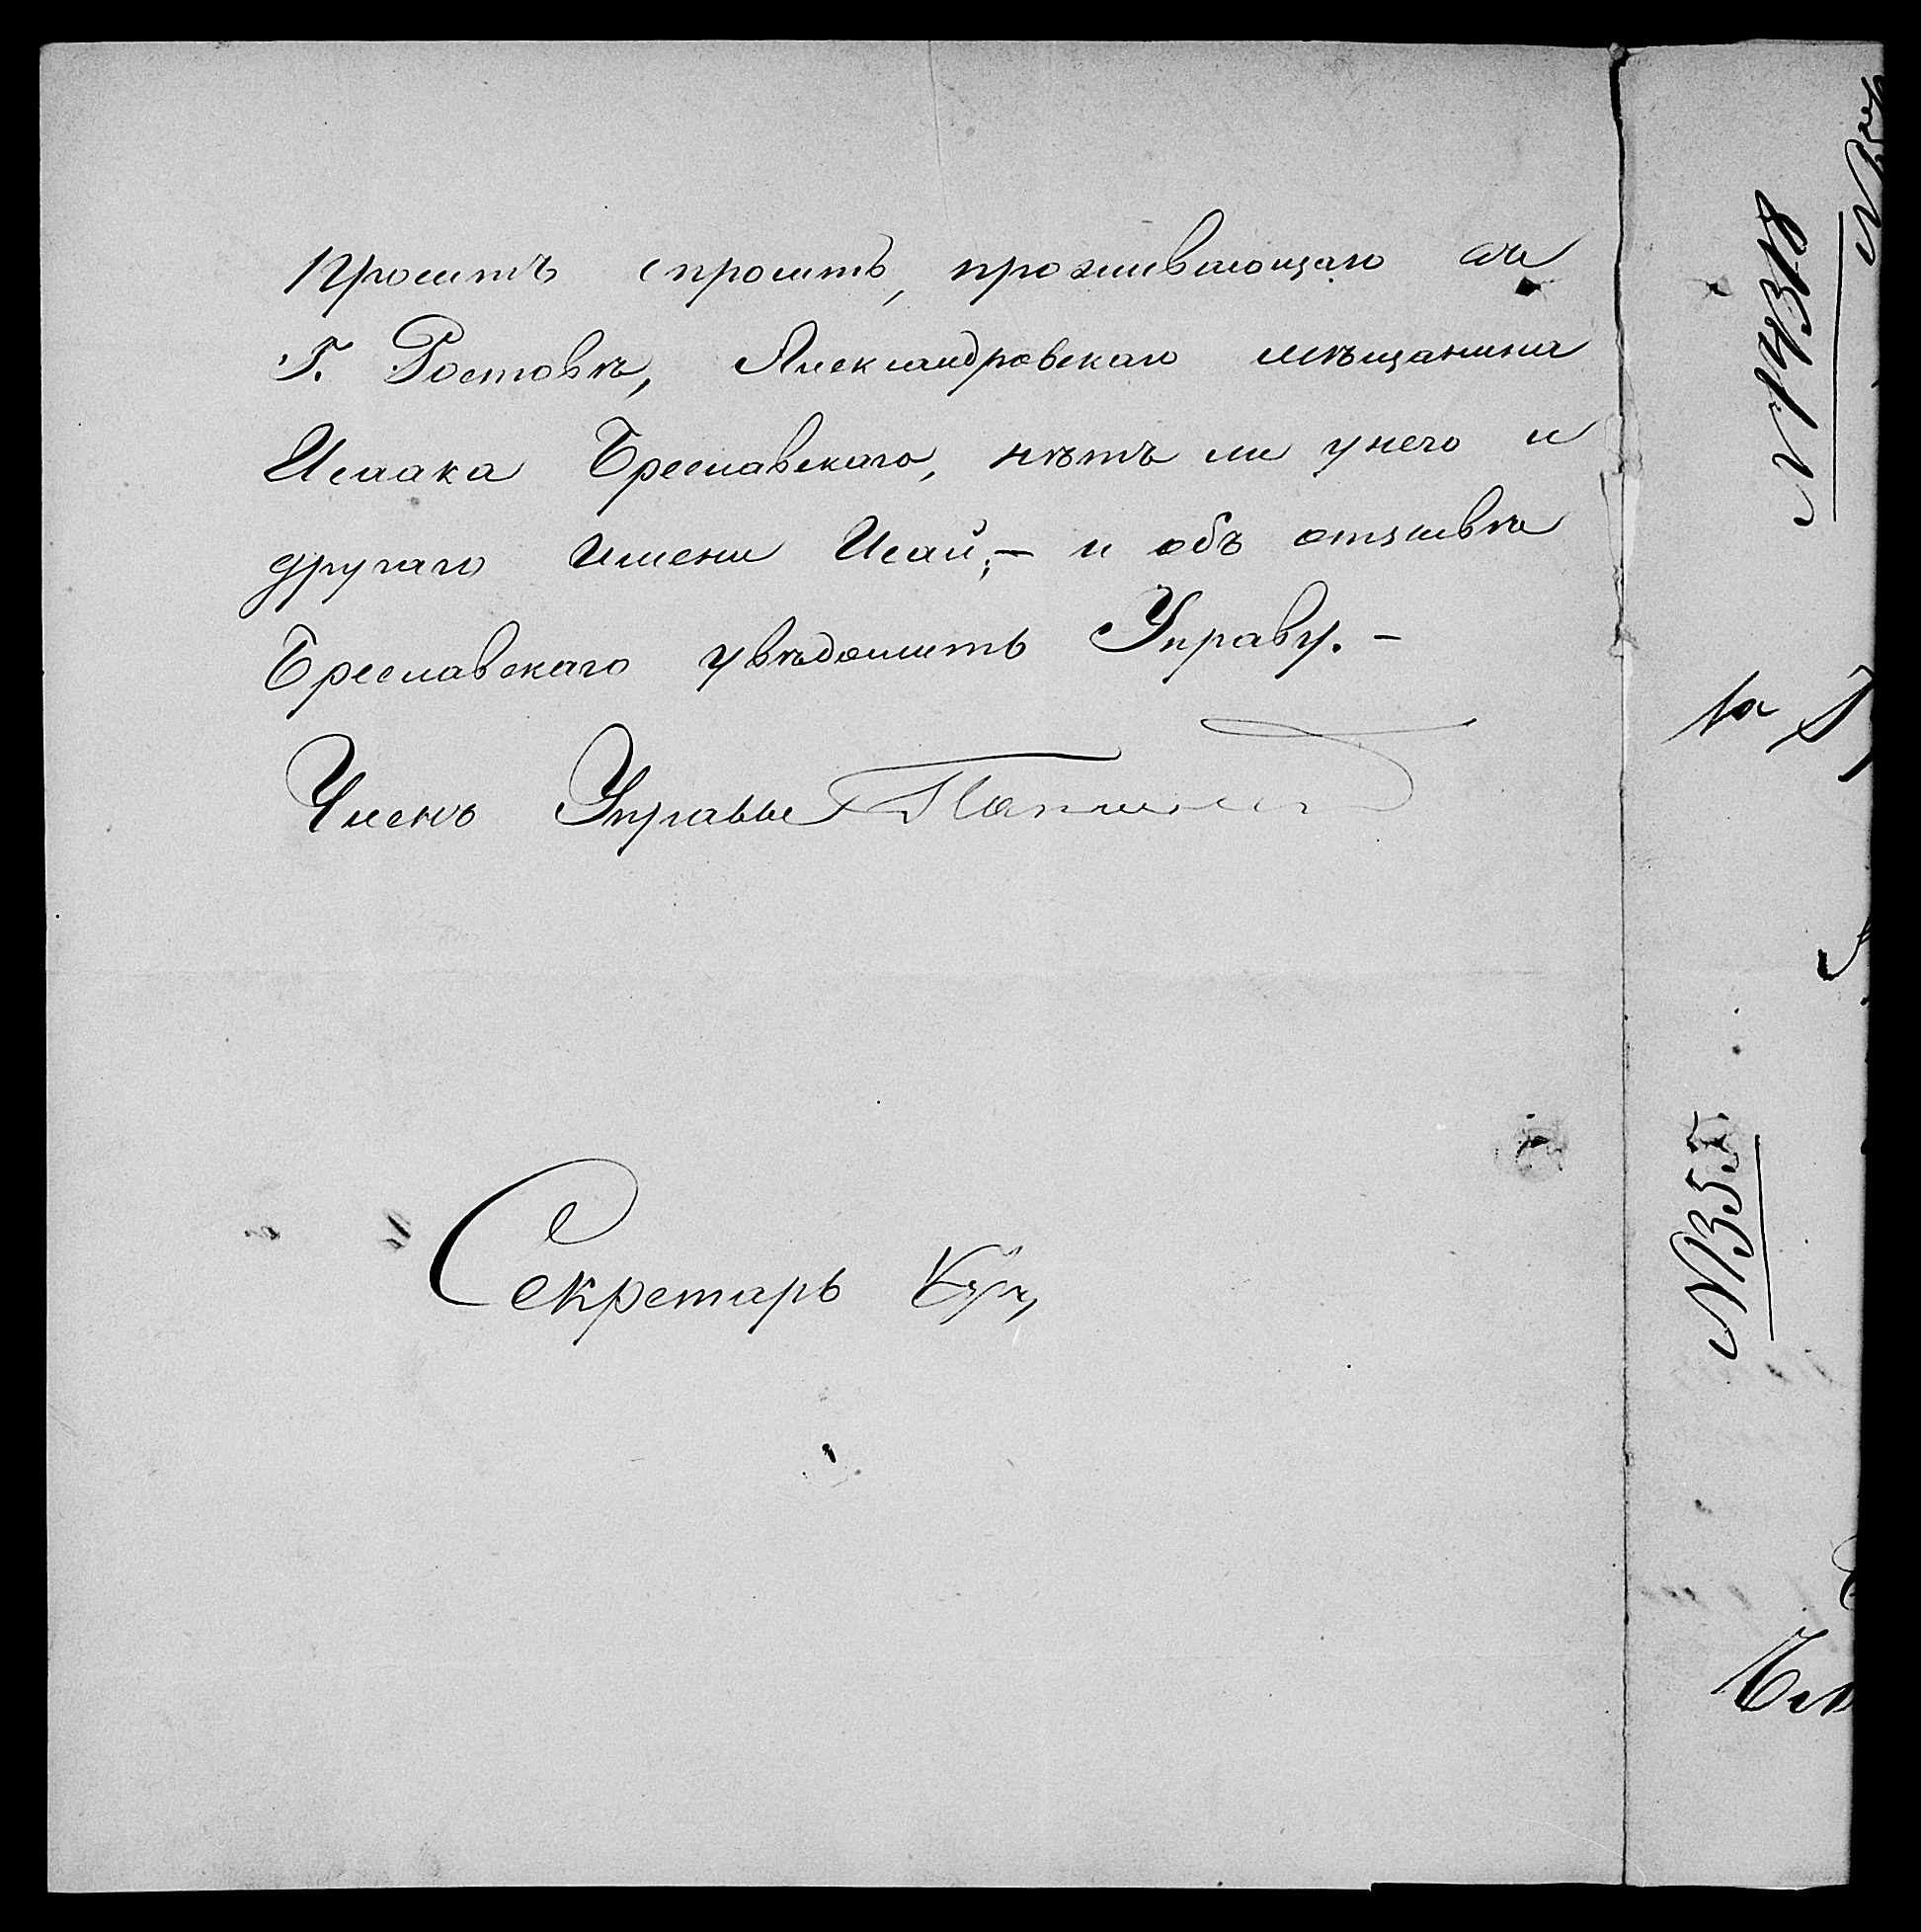 проситъ спросить, проживающаго въ
Г. Ростовѣ, Александровскаго мѣщанина
Исаака Бреславскаго, нѣтъ ли у него и
другаго имени Исай; — и объ отзывѣ
Бреславскаго увѣдомить Управу. —
Членъ Управы
Секретарь
№ 14318
№ 355.